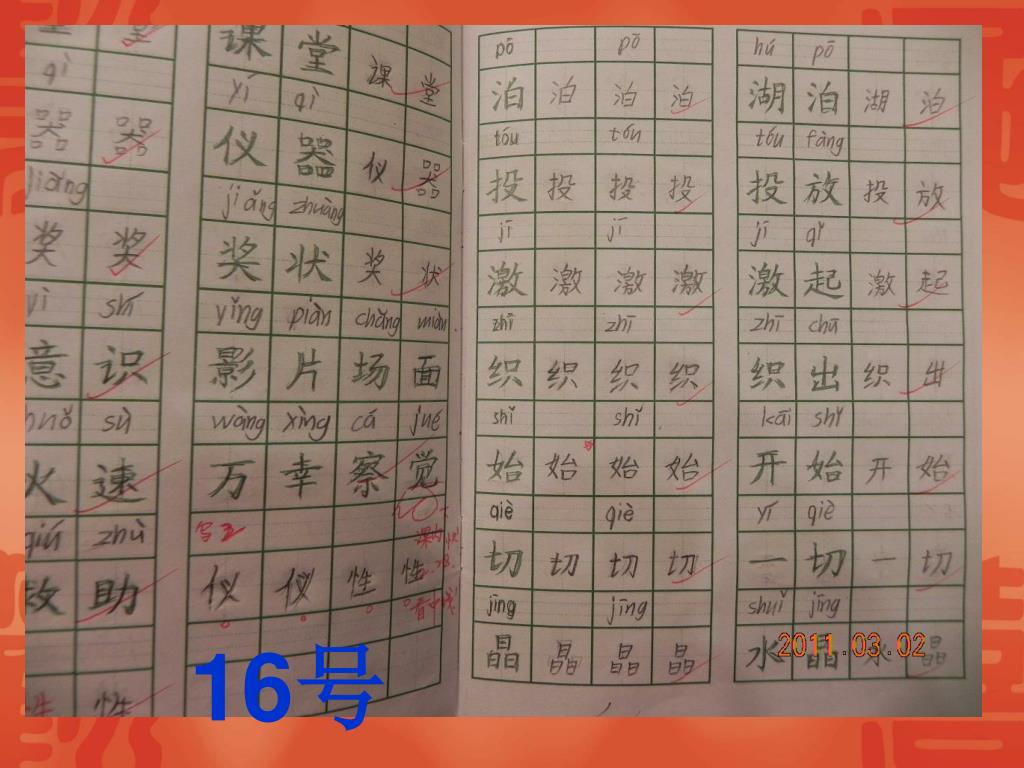 堂 堂
qì
器 器
jiǎng
奖 奖
yì shí
意 识
huǒ sù
火 速
jiú zhù
救 助
性 性
课 堂 课 堂
yí qì
仪 器 仪 器
jiǎng zhuàng
奖 状 奖 状
yǐng piàn chǎng miàn
影 片 场 面
wàng xìng cá jué
万 幸 察 觉
仪 仪 性 性
pō pō
泊 泊 泊 泊
tóu tóu
投 投 投 投
jī jī
激 激 激 激
zhī zhī
织 织 织 织
shǐ shǐ
始 始 始 始
qiè qiè
切 切 切 切
jīng jīng
晶 晶 晶 晶
hú pō
湖 泊 湖 泊
tóu fàng
投 放 投 放
jī qǐ
激 起 激 起
zhī chū
织 出 织 出
kāi shǐ
开 始 开 始
yī qiè
一 切 一 切
shuǐ jīng
水 晶 水 晶
2011.03.02
16号